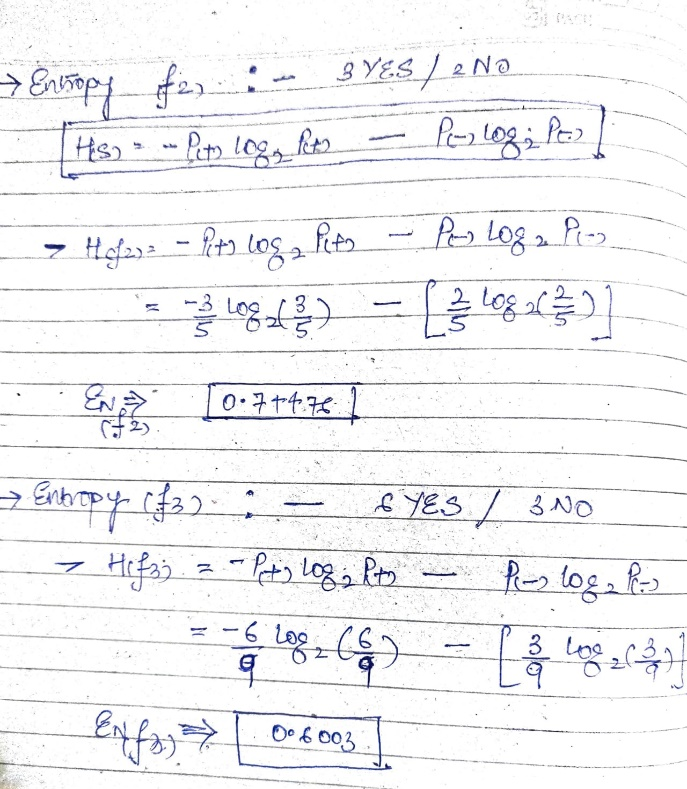 → Entropy (f2) :- 3 YES / 2 NO
H(S) = - P(+) log₂ P(+) - P(-) log₂ P(-)
→ H(f2) = - P(+) log₂ P(+) - P(-) log₂ P(-)
= -3/5 log₂(3/5) - [2/5 log₂(2/5)]
EN(f2) ⇒
→ Entropy (f3) :- 6 YES / 3 NO
→ H(f3) = - P(+) log₂ P(+) - P(-) log₂ P(-)
= -6/9 log₂(6/9) - [3/9 log₂(3/9)]
EN(f3) ⇒ 0.6003